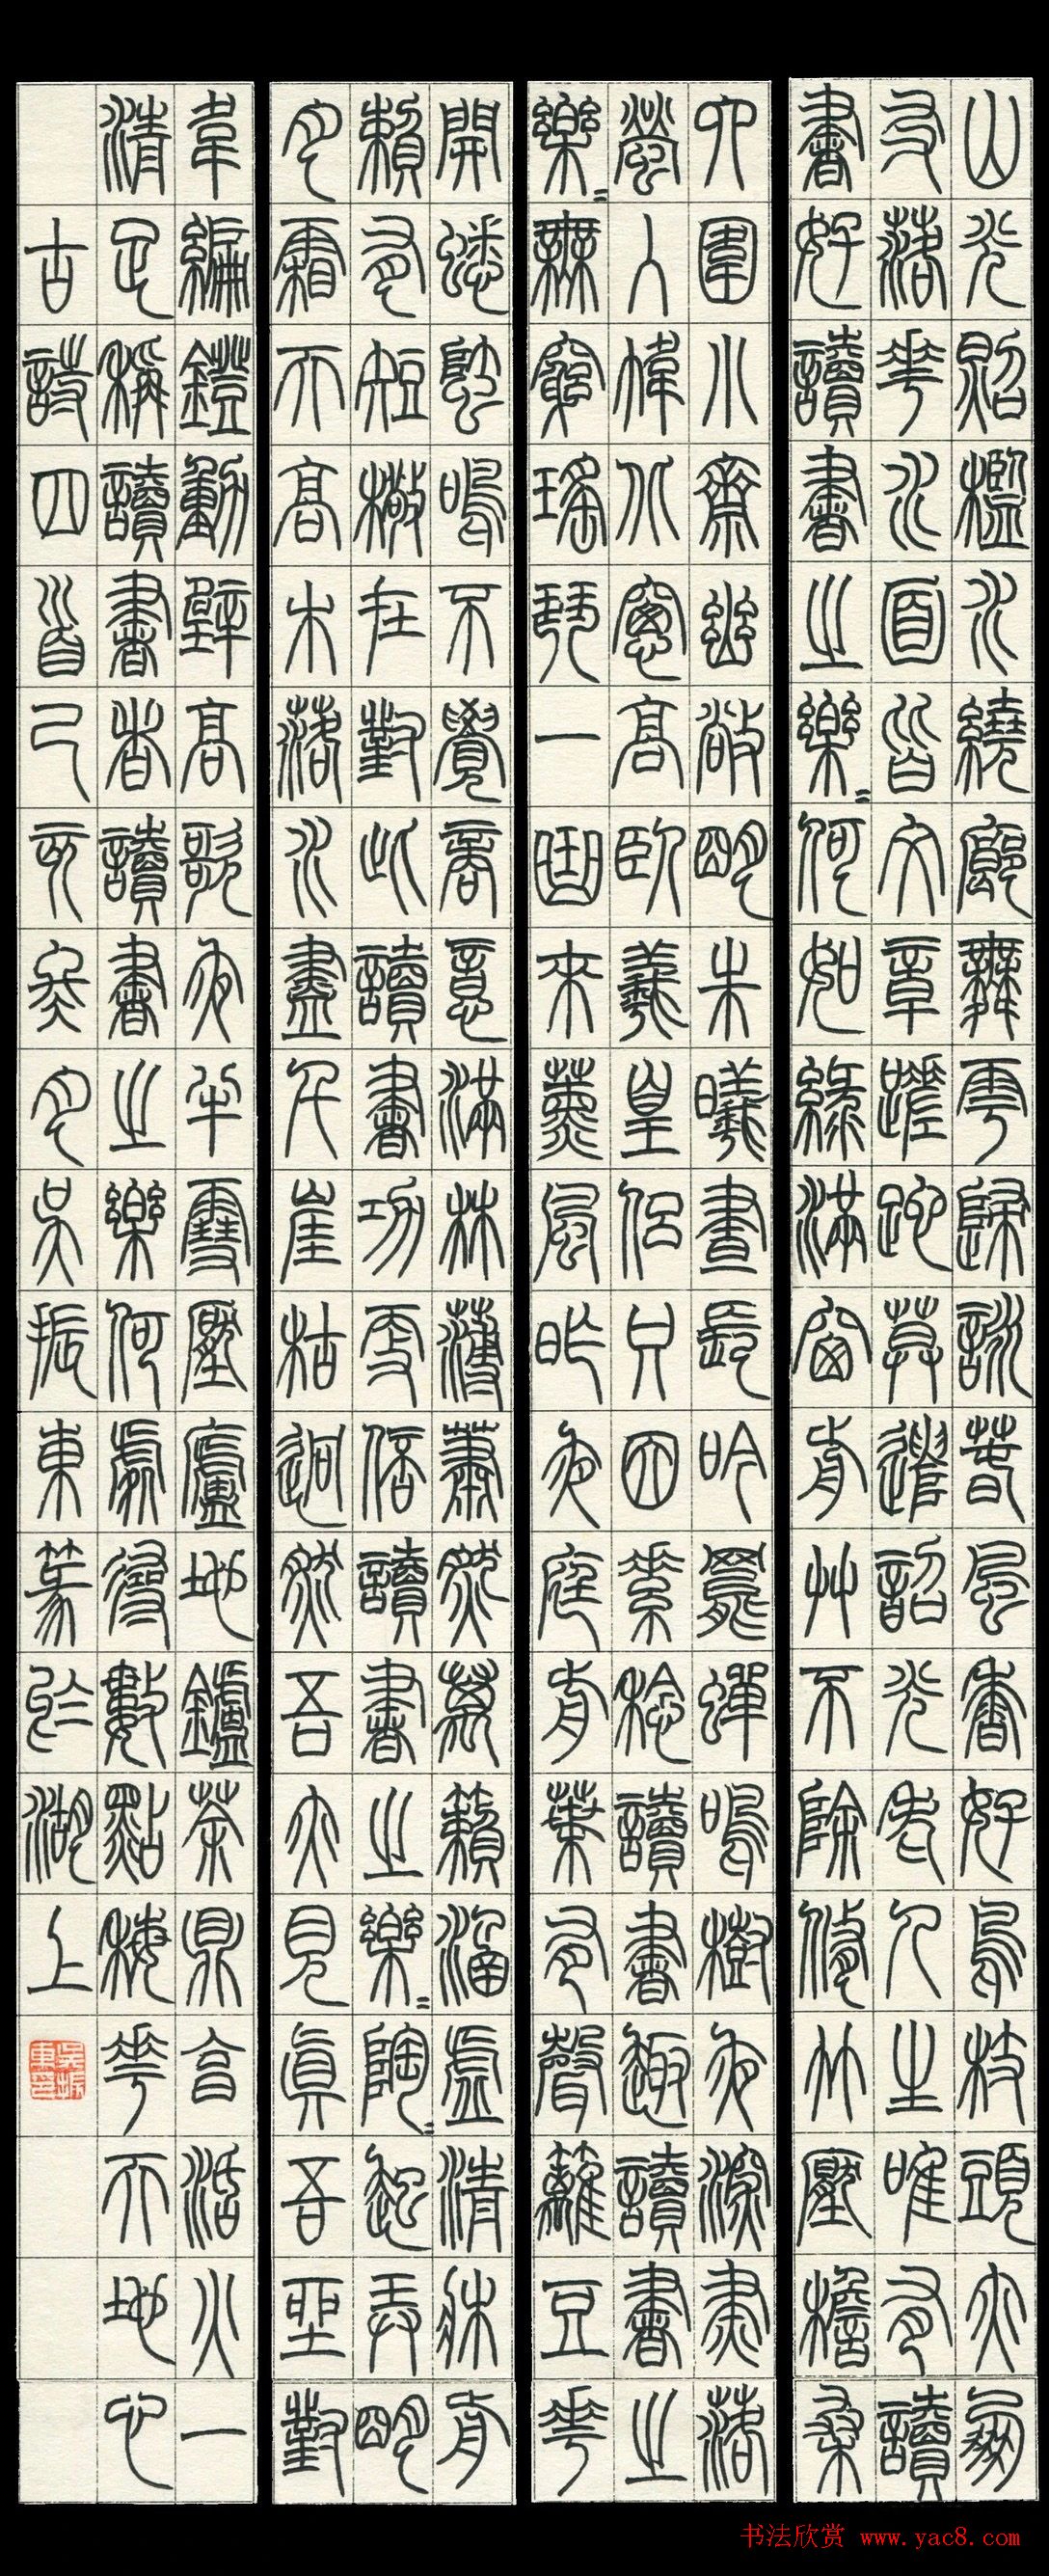 山光照檻水繞廊舞雩歸詠春風香好鳥枝頭亦朋
友落花水面皆文章蹉跎莫遣韶光老人生唯有讀
書好讀書之樂〻何如綠滿窗前草不除修竹壓檐桑
四圍小齋幽敞明朱曦晝長吟罷蟬鳴樹夜深燼落
螢入幃北窗高臥羲皇侶只因素稔讀書趣讀書之
樂〻無窮瑤琴一曲來薰風昨夜庭前葉有聲籬豆花
開蟋蟀鳴不覺商意滿林薄蕭然萬籟涵虛清牀前
賴有短檠在對此讀書功更倍讀書之樂〻陶〻起弄明
月霜天高木落水盡千崖枯迥然吾亦見真吾坐對
韋編鐙動壁高歌夜半雪壓廬地鑪茶鼎烹活火一
清足稱讀書者讀書之樂何處尋數點梅花天地心
古詩四首己亥冬月吳振東篆於湖上
吳振東印
书法欣赏 www.yac8.com